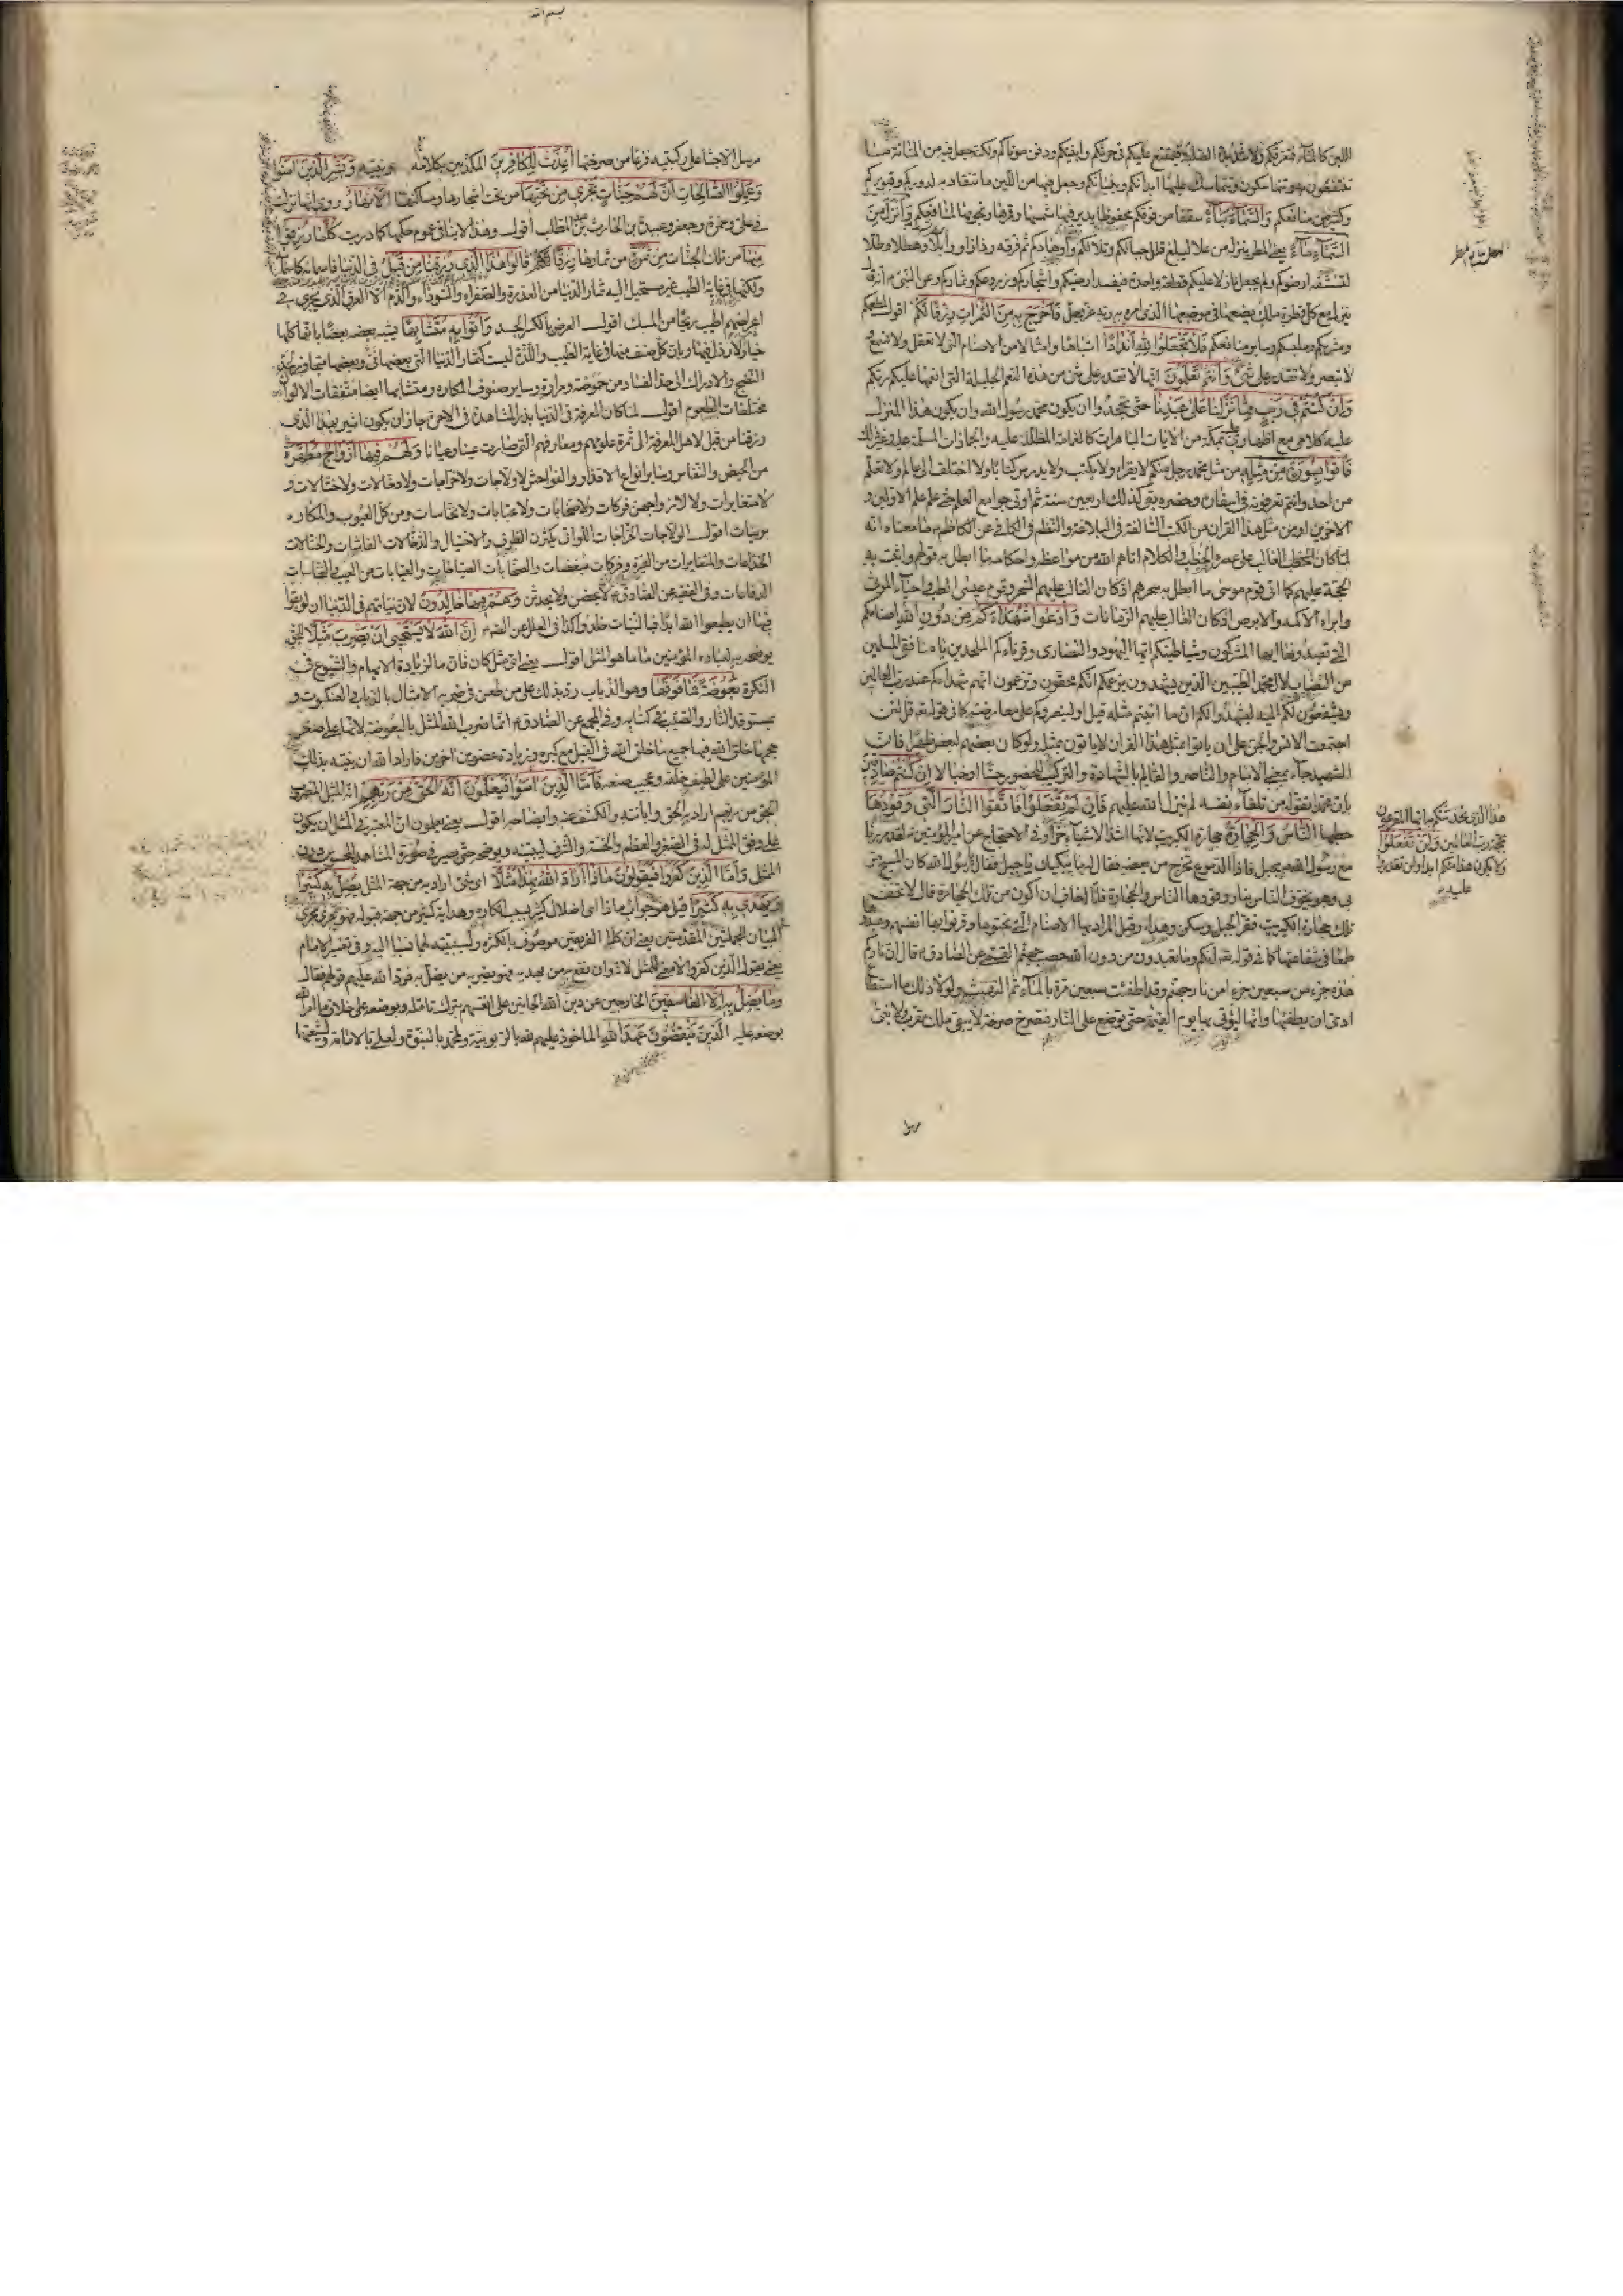 اللين كالماء فتغرقكم ولا شديدة الصلابة فتمتنع عليكم في حرثكم وابنيتكم ودفن موتاكم ولكنه جعل فيه من المتانة ما
تنتفعون به وتتماسكون وتتماسك عليها ابدانكم وبنيانكم وجعل فيها من اللين ما تنقاد به لدوركم وقبوركم
وكثير من منافعكم وَالسَّمَاءَ بِنَاءً سقفا من فوقكم محفوظا يدير فيها شمسها وقمرها ونجومها لمنافعكم وَأَنْزَلَ مِنَ
السَّمَاءِ مَاءً يعني المطر ينزله من علا ليبلغ قلل جبالكم وتلالكم وهضابكم واوهادكم ثم فرقه رذاذا ووابلا وهطلا وطلا
لتنشفه ارضوكم ولم يجعل نازلا عليكم قطعة واحدة فيفسد ارضيكم واشجاركم وزروعكم وثماركم وعن النبي انه
ينزل مع كل قطرة ملك يضعها في موضعها الذي امره به ربه عز وجل فَأَخْرَجَ بِهِ مِنَ الثَّمَرَاتِ رِزْقًا لَكُمْ اقول لمطعمكم
ومشربكم وملبسكم وساير منافعكم فَلَا تَجْعَلُوا لِلَّهِ أَنْدَادًا اشباها وامثالا من الاصنام التي لا تعقل ولا تسمع و
لا تبصر ولا تقدر على شيء وَأَنْتُمْ تَعْلَمُونَ انها لا تقدر على شيء من هذه النعم الجليلة التي انعمها عليكم ربكم
وَإِنْ كُنْتُمْ فِي رَيْبٍ مِمَّا نَزَّلْنَا عَلَى عَبْدِنَا حتى تجحدوا ان يكون محمد رسول الله وان يكون هذا المنزل
عليه كلامي مع اظهاري عليه بمكة من الايات الباهرات كالغمامة المظللة عليه والجمادات المسلمة عليه وغير ذلك
فَأْتُوا بِسُورَةٍ مِنْ مِثْلِهِ من مثل محمد رجل منكم لا يقرا ولا يكتب ولا يدرس كتابا ولا اختلف الى عالم ولا تعلم
من احد وانتم تعرفونه في اسفاره وحضره بقي كذلك اربعين سنة ثم اوتي جوامع العلم حتى علم علم الاولين و
الاخرين او من مثل هذا القران من الكتب السالفة في البلاغة والنظم في الكافي عن الكاظم ما معناه انه
لما كان الخطب الغالب على عصره الخطب والكلام اتاهم الله من مواعظه واحكامه ما ابطل به قولهم واثبت به
الحجة عليهم كما اتى قوم موسى ما ابطل به سحرهم اذ كان الغالب عليهم السحر وقوم عيسى الطب واحياء الموتى
وابراء الاكمه والابرص اذ كان الغالب عليهم الزمانات وَادْعُوا شُهَدَاءَكُمْ مِنْ دُونِ اللَّهِ اصنامكم
التي تعبدونها ايها المشركون وشياطينكم ايها اليهود والنصارى وقرناءكم الملحدين يا منافقي المسلمين
من النصاب لال محمد الطيبين الذين يشهدون بزعمكم انكم محقون وتزعمون انهم شهداءكم عند رب العالمين
ويشفعون لكم اليه ليشهدوا لكم ان ما اتيتم مثله قيل او لينصروكم على معارضته كما في قوله تعالى قل لئن
اجتمعت الانس والجن على ان ياتوا بمثل هذا القران لا ياتون بمثله ولو كان بعضهم لبعض ظهيرا فان
الشهيد جاء بمعنى الامام والناصر والقائم بالشهادة والتركيب للحضور حسا او خيالا إِنْ كُنْتُمْ صَادِقِينَ
بان محمدا تقوله من تلقاء نفسه لم ينزله الله عليه فَإِنْ لَمْ تَفْعَلُوا فَاتَّقُوا النَّارَ الَّتِي وَقُودُهَا
حطبها النَّاسُ وَالْحِجَارَةُ حجارة الكبريت لانها اشد الاشياء حرا وفي الاحتجاج عن امير المؤمنين لقد مررنا
مع رسول الله بجبل فاذا الدموع تخرج من بعضه فقال له ما يبكيك يا جبل فقال يا رسول الله كان المسيح مر
بي وهو يخوف الناس بنار وقودها الناس والحجارة فانا اخاف ان اكون من تلك الحجارة قال لا تخف
تلك حجارة الكبريت فقر الجبل وسكن وهدا وقيل المراد بها الاصنام التي نحتوها وقرنوا بها انفسهم وعبدوها
طمعا في شفاعتها كما في قوله تعالى انكم وما تعبدون من دون الله حصب جهنم القمي عن الصادق قال ان ناركم
هذه جزء من سبعين جزءا من نار جهنم وقد اطفئت سبعين مرة بالماء ثم التهبت ولولا ذلك ما استطاع
ادمي ان يطفيها وانها ليؤتى بها يوم القيمة حتى توضع على النار فتصرخ صرخة لا يبقى ملك مقرب ولا نبي
هذا الذي تحديتكم به ايها المقرعون
بحجة رب العالمين وَلَنْ تَفْعَلُوا
ولا يكون هذا منكم ابدا ولن تقدروا
عليه
مرسل الا جثا على ركبتيه فزعا من صرختها أُعِدَّتْ لِلْكَافِرِينَ المكذبين بكلامه ونبيه وَبَشِّرِ الَّذِينَ آمَنُوا
وَعَمِلُوا الصَّالِحَاتِ أَنَّ لَهُمْ جَنَّاتٍ تَجْرِي مِنْ تَحْتِهَا من تحت اشجارها ومساكنها الْأَنْهَارُ روي انها نزلت
في علي وحمزة وجعفر وعبيدة بن الحارث بن عبد المطلب اقول وهذا لا ينافي عموم حكمها كما دريت كُلَّمَا رُزِقُوا
مِنْهَا من تلك الجنات مِنْ ثَمَرَةٍ من ثمارها رِزْقًا قَالُوا هَذَا الَّذِي رُزِقْنَا مِنْ قَبْلُ في الدنيا فاسماؤه كاسمائه
ولكنها في غاية الطيب غير مستحيل اليه ثمار الدنيا من العذرة والصفراء والسوداء والدم الا العرق الذي يجري في
اعراضهم اطيب ريحا من المسك اقول العرض بالكسر الجسد وَأُتُوا بِهِ مُتَشَابِهًا يشبه بعضه بعضا بانها كلها
خيار لا رذل فيها وبان كل صنف منها في غاية الطيب واللذة ليست كثمار الدنيا التي بعضها ني وبعضها متجاوز لحد
النضج والادراك الى حد الفساد من حموضة ومرارة وساير صنوف المكاره ومتشابها ايضا متفقات الالوان
مختلفات الطعوم اقول لما كان المعرفة في الدنيا بذر المشاهدة في الاخرة جاز ان يكون اشير بهذا الذي
رزقنا من قبل لاهل المعرفة الى ثمرة علومهم ومعارفهم التي صارت عينا وعيانا وَلَهُمْ فِيهَا أَزْوَاجٌ مُطَهَّرَةٌ
من الحيض والنفاس وساير انواع الاقذار والفواحش لا ولاجات ولا خراجات ولا دخالات ولا ختالات و
لا متغايرات ولا لازواجهن فركات ولا صخابات ولا عيابات ولا نخاسات ومن كل العيوب والمكاره
بريئات اقول الولاجات الخراجات اللواتي يكثرن الطوف والاختيال والدخالات الغاشات والختالات
الخداعات والمتغايرات من الغيرة وفركات مبغضات والصخابات الصياطات والعيابات من العيب والنخاسات
الدفاعات وفي الفقيه عن الصادق لا يحضن ولا يحدثن وَهُمْ فِيهَا خَالِدُونَ لان نياتهم في الدنيا ان لو بقوا
فيها ان يطيعوا الله ابدا فبالنيات خلدوا كذا في العلل عن الصادق إِنَّ اللَّهَ لَا يَسْتَحْيِي أَنْ يَضْرِبَ مَثَلًا للحق
يوضحه به لعباده المؤمنين مَا ما هو المثل اقول يعني اي مثل كان فان ما لزيادة الابهام والشيوع في
النكرة بَعُوضَةً فَمَا فَوْقَهَا وهو الذباب رد بذلك على من طعن في ضربه الامثال بالذباب والعنكبوت و
بمستوقد النار والصيب في كتابه وفي المجمع عن الصادق انما ضرب الله المثل بالبعوضة لانها على صغر
حجمها خلق الله فيها جميع ما خلق الله في الفيل مع كبره وزيادة عضوين آخرين فاراد الله ان ينبه بذلك
المؤمنين على لطيف خلقه وعجيب صنعه فَأَمَّا الَّذِينَ آمَنُوا فَيَعْلَمُونَ أَنَّهُ الْحَقُّ مِنْ رَبِّهِمْ انه المثل المضروب
الحق من ربهم اراد به الحق وابانته والكشف عنه وايضاحه اقول يعني يعلمون ان المعتبر في المثل ان يكون
على وفق الممثل له في الصغر والعظم والخسة والشرف ليبينه ويوضحه حتى يصير في صورة المشاهد المحسوس دون
الممثل وَأَمَّا الَّذِينَ كَفَرُوا فَيَقُولُونَ مَاذَا أَرَادَ اللَّهُ بِهَذَا مَثَلًا اي شيء اراد به من جهة المثل يُضِلُّ بِهِ كَثِيرًا
وَيَهْدِي بِهِ كَثِيرًا قيل هو جواب ماذا اي اضلال كثير بسبب انكاره وهداية كثير من جهة قبوله فهو يجري مجرى
البيان للجملتين المتقدمتين يعني ان كلا الفريقين موصوف بالكثرة ولسببيته لهما نسبا اليه وفي تفسير الامام
يعني يقول الذين كفروا لا معنى للمثل لانه وان نفع به من يهديه فهو يضر به من يضله به فرد الله عليهم قولهم فقال
وَمَا يُضِلُّ بِهِ إِلَّا الْفَاسِقِينَ الخارجين عن دين الله الجانين على انفسهم بترك تامله وبوضعه على خلاف ما امر الله
بوضعه عليه الَّذِينَ يَنْقُضُونَ عَهْدَ اللَّهِ الماخوذ عليهم لله بالربوبية ولمحمد بالنبوة ولعلي بالامامة ولشيعتهما